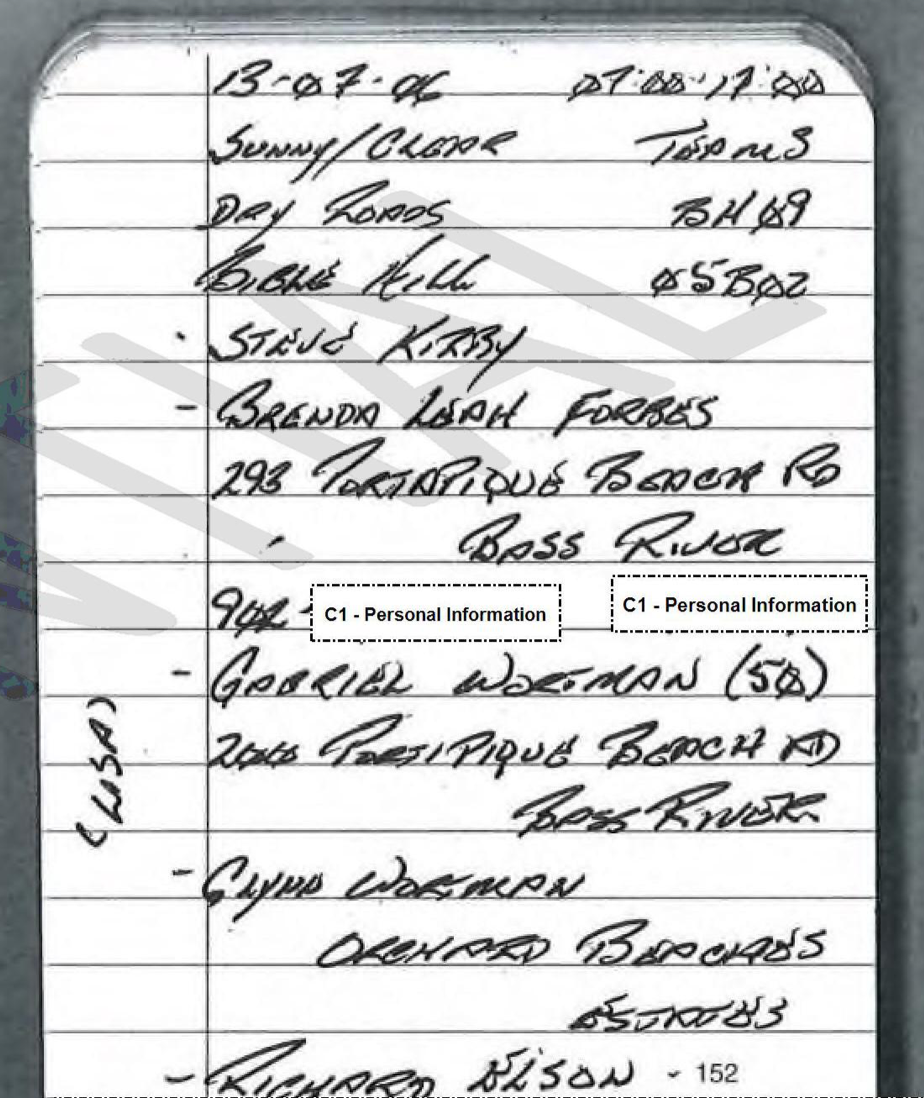 13-07-06 07:00-17:00
SUNNY/CLEAR TEAM 3
DRY ROADS BH09
BIBLE HILL 05B02
- STEVE KIRBY
- BRENDA LEAH FORBES
293 PORTAPIQUE BEACH RD
BASS RIVER
902- C1 - Personal Information C1 - Personal Information
- GABRIEL WORTMAN (50)
(LISA)
PORTIPIQUE BEACH RD
BASS RIVER
- GLYNN WORTMAN
ORCHARD BEACHES
ESTATES
- RICHARD ELLISON - 152